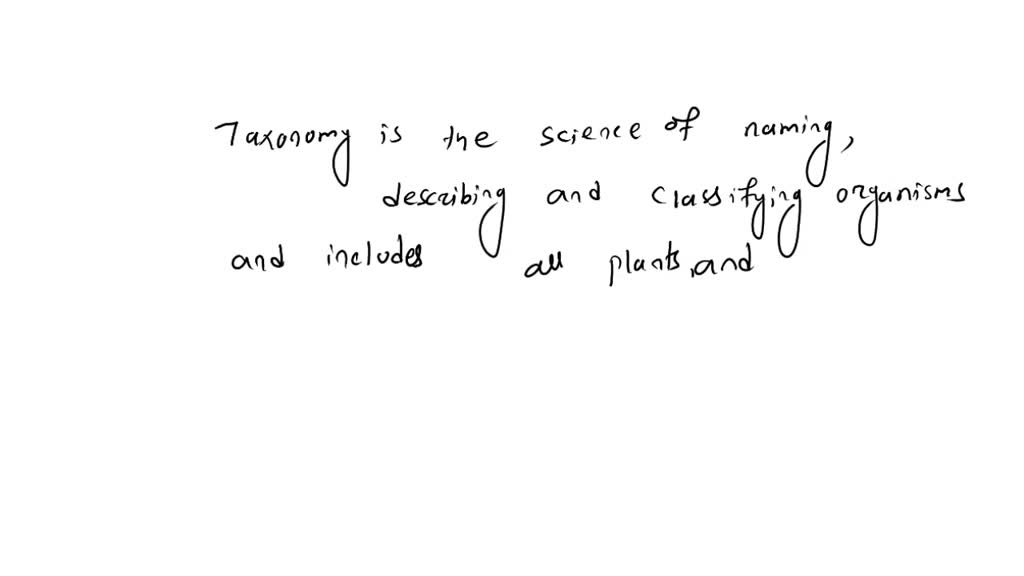 Taxonomy is the science of naming,
describing and classifying organisms
and includes all plants, and